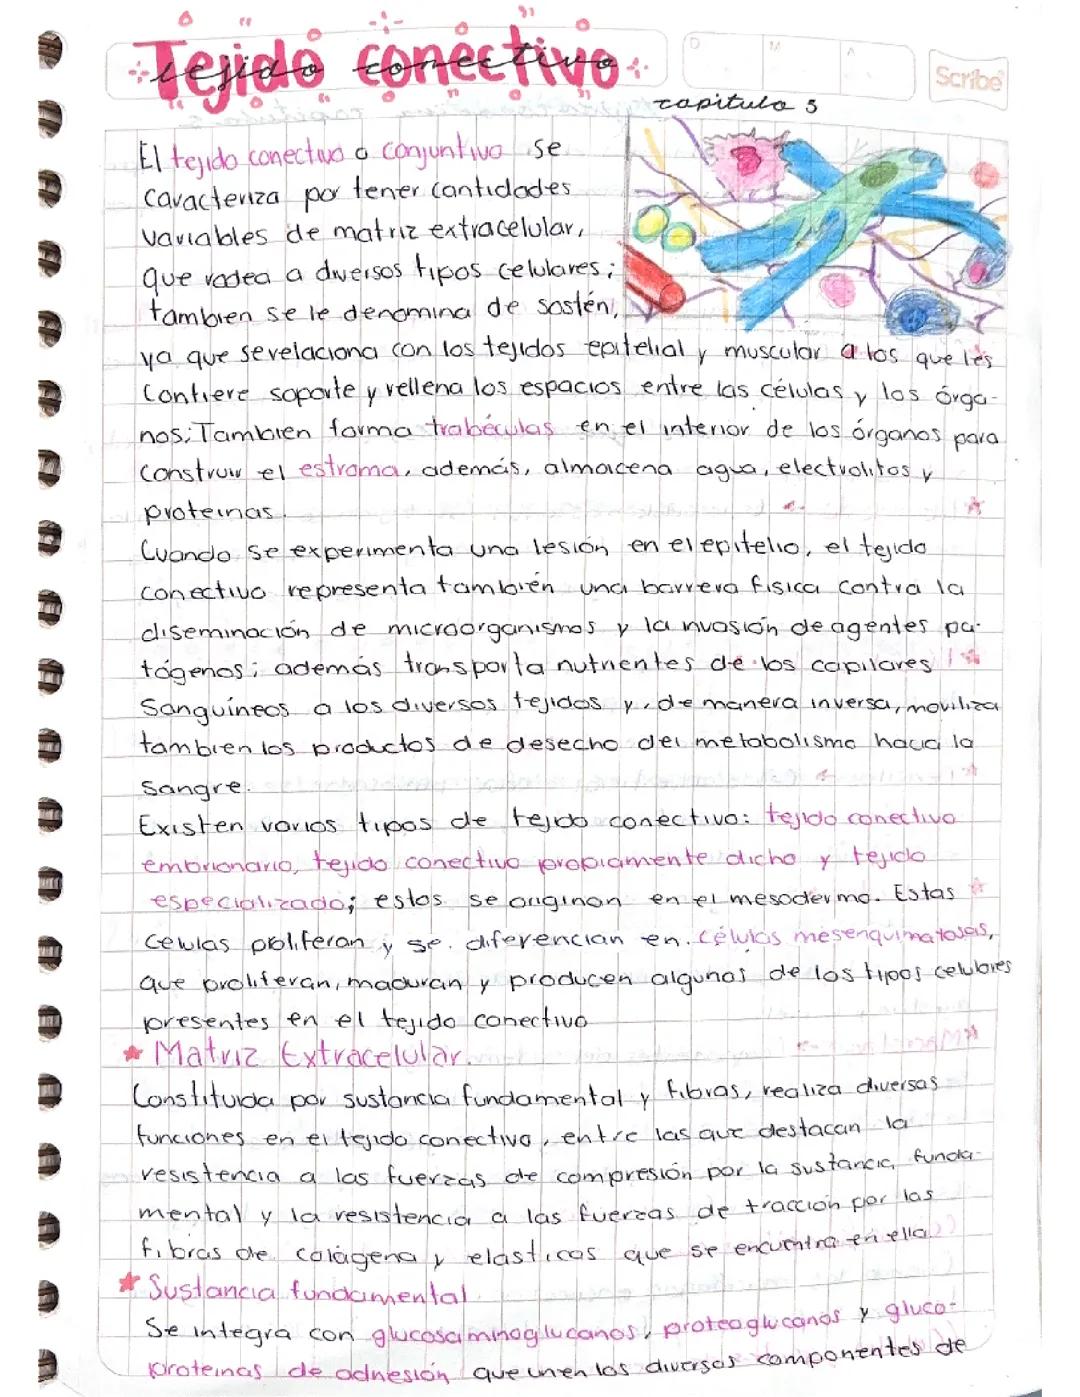 Tejido conectivo
tejido conectivo
D M A
Scribe
capítulo 5
El tejido conectivo o conjuntivo se
caracteriza por tener cantidades
variables de matriz extracelular,
que rodea a diversos tipos celulares;
tambien se le denomina de sostén,
ya que se relaciona con los tejidos epitelial y muscular a los que les
Contiere soporte y rellena los espacios entre las células y los órga-
nos; Tambien forma trabéculas en el interior de los órganos para
Construir el estroma, además, almacena agua, electrolitos y
proteinas.
Cuando se experimenta una lesión en el epitelio, el tejido
conectivo representa también una barrera física contra la
diseminación de microorganismos y la invasión de agentes pa-
tógenos; además transporta nutrientes de los capilares
Sanguíneos a los diversos tejidos y, de manera inversa, moviliza
tambien los productos de desecho del metabolismo hacia la
Sangre.
Existen varios tipos de tejido conectivo: tejido conectivo
embrionario, tejido conectivo propiamente dicho y tejido
especializado; estos se originan en el mesodermo. Estas
Celulas proliferan y se diferencian en células mesenquimatosas,
que proliferan, maduran y producen algunos de los tipos celulares
presentes en el tejido conectivo
Matriz Extracelular.
Constituida por sustancia fundamental y fibras, realiza diversas
funciones en el tejido conectivo, entre las que destacan la
resistencia a las fuerzas de compresión por la sustancia funda-
mental y la resistencia a las fuerzas de tracción por las
fibras de colágena y elasticas que se encuentra en ella.
Sustancia fundamental.
Se integra con glucosaminoglucanos, proteoglucanos y gluco-
proteinas de adhesión que unen los diversos componentes de